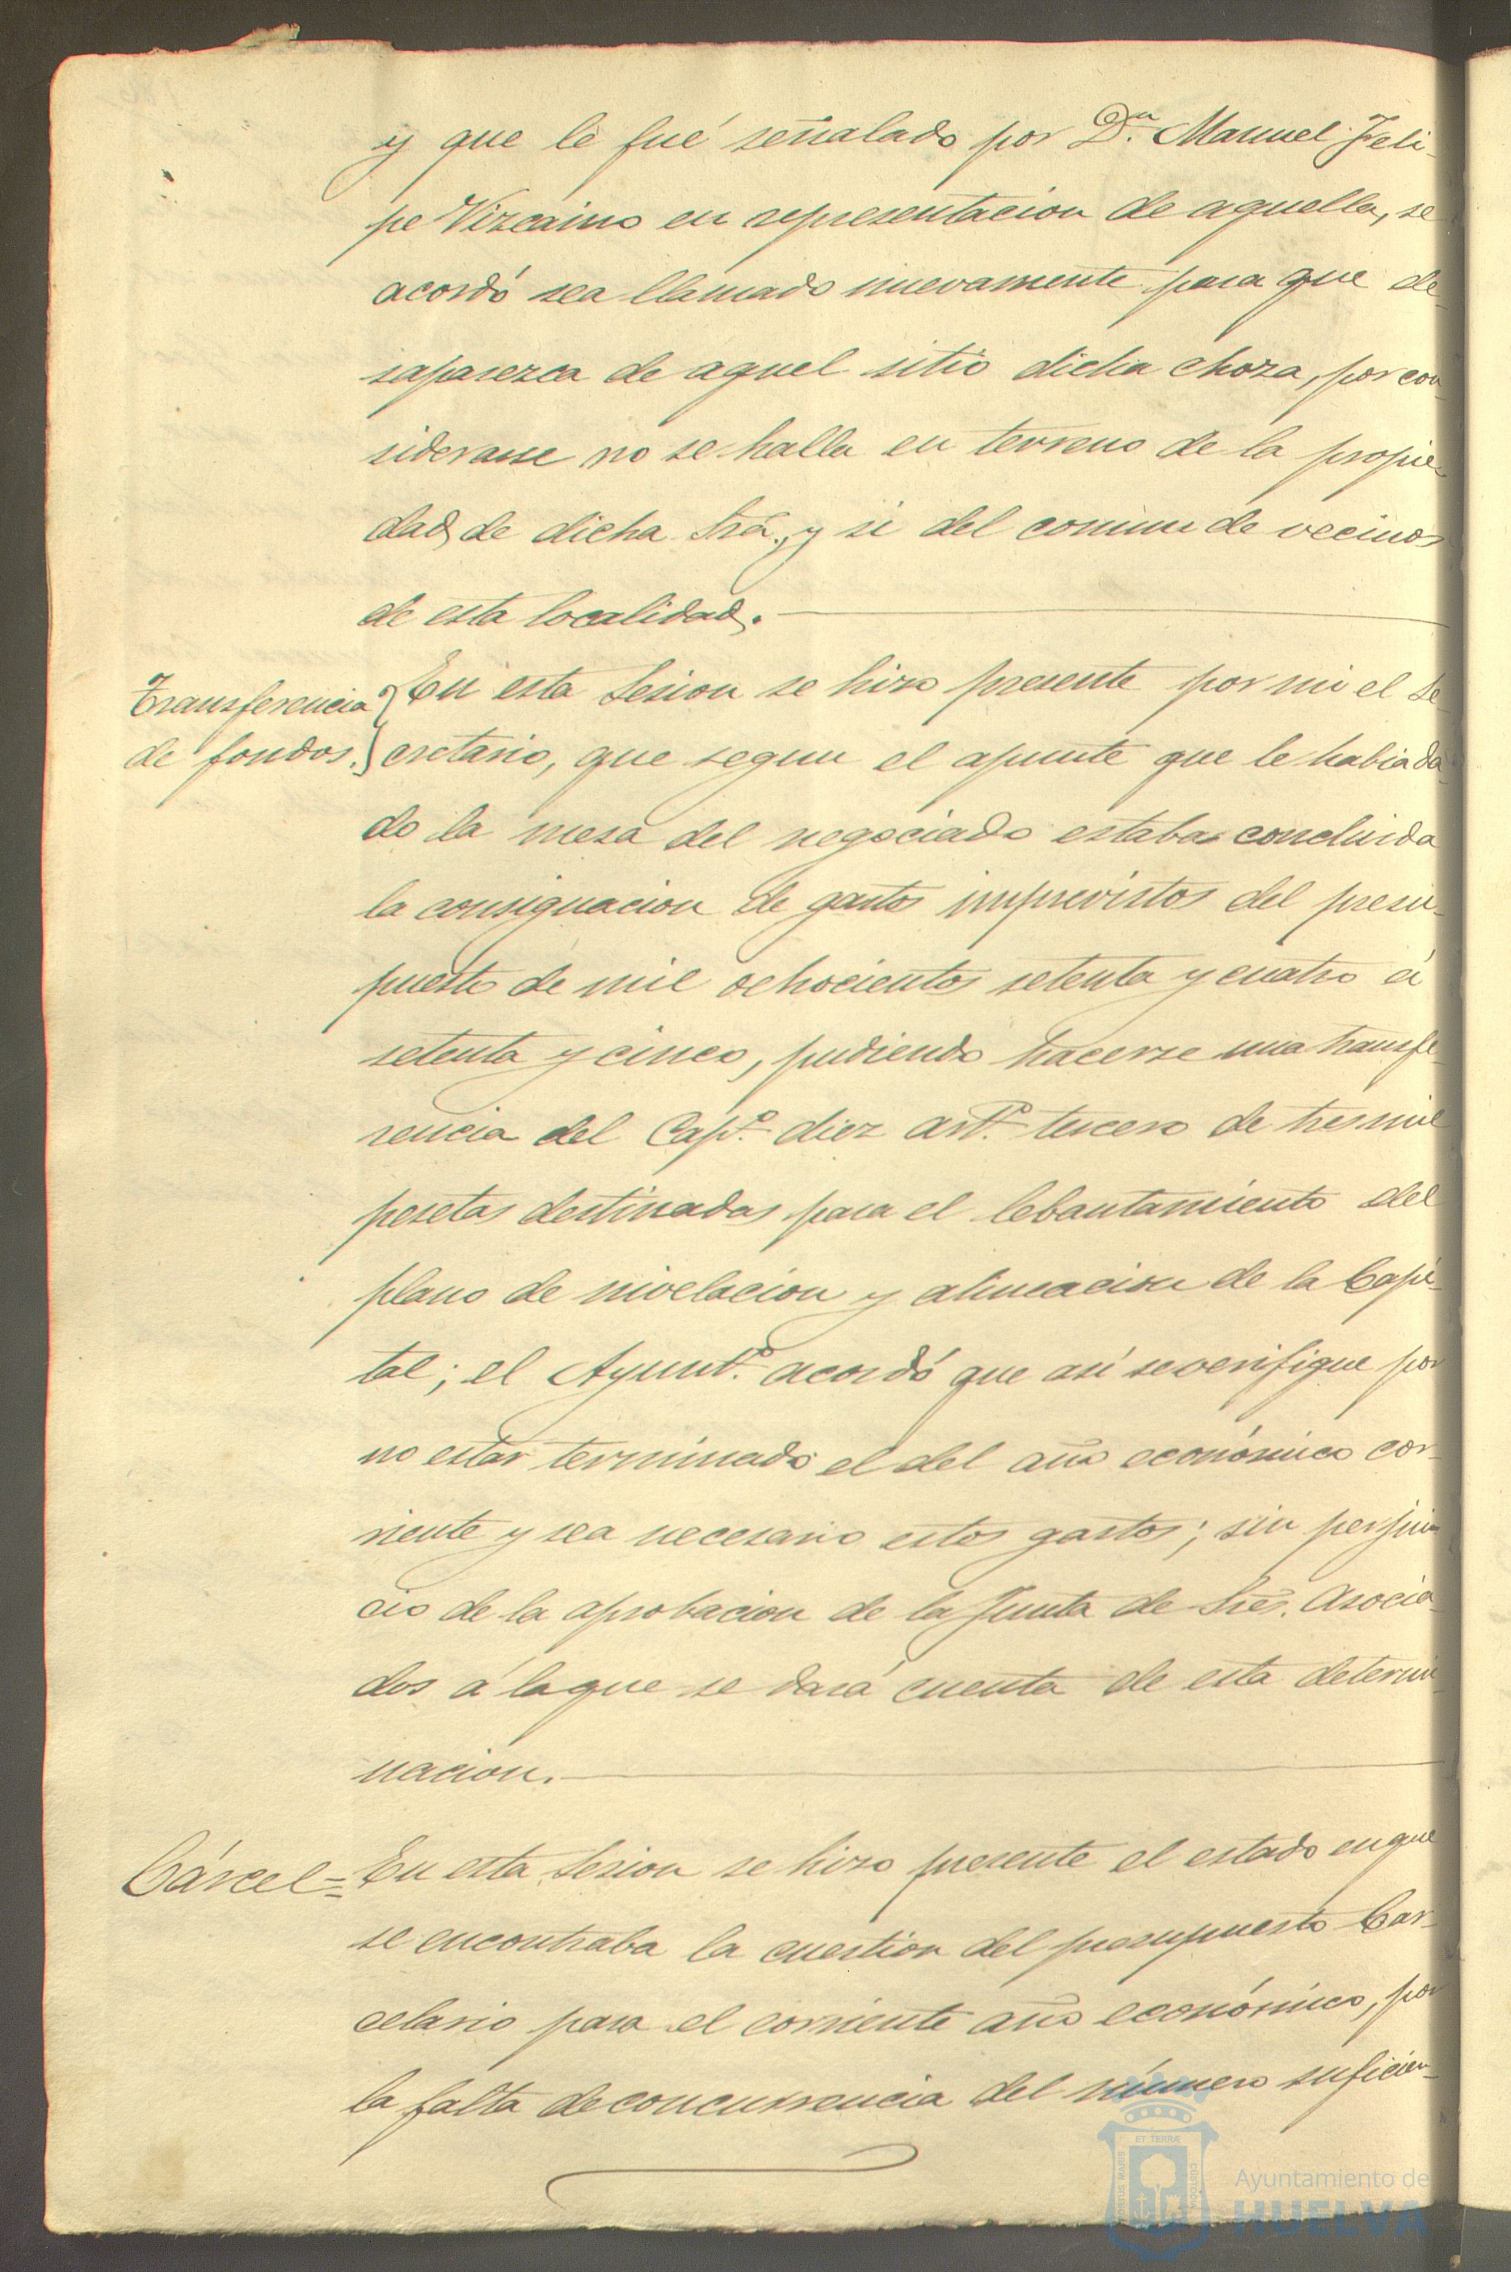 y que le fué señalado por D.ⁿ Manuel Feli-
pe Vizcaino en representacion de aquella, se
acordó sea llamado nuevamente para que de-
saparezca de aquel sitio dicha choza, por con-
siderarse no se halla en terreno de la propie-
dad de dicha Sra., y si del comun de vecinos
de esta localidad.
Transferencia
de fondos.
En esta Sesion se hizo presente por mi el Se-
cretario, que segun el apunte que le habia da-
do la mesa del negociado estaba concluida
la consignacion de gastos imprevistos del presu-
puesto de mil ochocientos setenta y cuatro á
setenta y cinco, pudiendo hacerse una transfe-
rencia del Cap.º diez art.º tercero de tres mil
pesetas destinadas para el lebantamiento del
plano de nivelacion y alineacion de la Capi-
tal; el Ayunt.º acordó que así se verifique por
no estar terminado el del año económico cor-
riente y sea necesario estos gastos; sin perjui-
cio de la aprobacion de la Junta de Sres. Asocia-
dos á la que se dará cuenta de esta determi-
nacion.
Cárcel=
En esta Sesion se hizo presente el estado en que
se encontraba la cuestion del presupuesto Car-
celario para el corriente año económico, por
la falta de concurrencia del número suficien-
ET TERRÆ
PORTUS MARIS
CUSTODIA
Ayuntamiento de
HUELVA